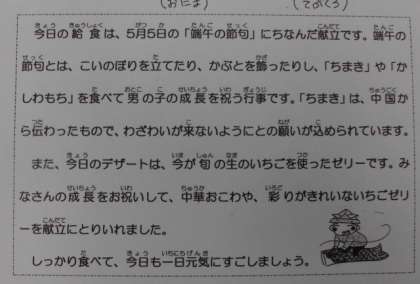 (おにま (てのくろ)
今日の給食は、5月5日の「端午の節句」にちなんだ献立です。端午の
節句とは、こいのぼりを立てたり、かぶとを飾ったりし、「ちまき」や「か
しわもち」を食べて男の子の成長を祝う行事です。「ちまき」は、中国か
ら伝わったもので、わざわいが来ないようにとの願いが込められています。
また、今日のデザートは、今が旬の生のいちごを使ったゼリーです。み
なさんの成長をお祝いして、中華おこわや、彩りがきれいないちごゼリ
ーを献立にとりいれました。
しっかり食べて、今日も一日元気にすごしましょう。